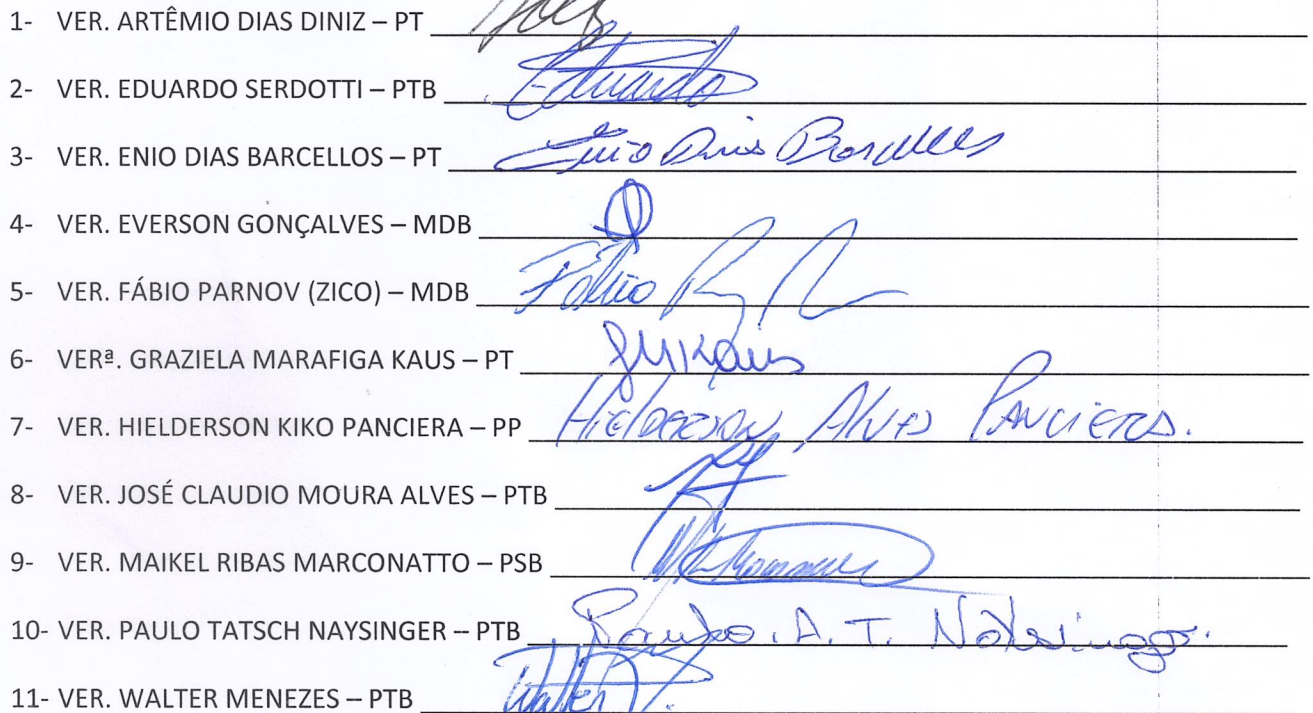 1- VER. ARTÊMIO DIAS DINIZ – PT
2- VER. EDUARDO SERDOTTI – PTB Eduardo
3- VER. ENIO DIAS BARCELLOS – PT Enio Dias Barcellos
4- VER. EVERSON GONÇALVES – MDB
5- VER. FÁBIO PARNOV (ZICO) – MDB Fábio
6- VERª. GRAZIELA MARAFIGA KAUS – PT GMKaus
7- VER. HIELDERSON KIKO PANCIERA – PP HIELDERSON ALVES PANCIERA.
8- VER. JOSÉ CLAUDIO MOURA ALVES – PTB
9- VER. MAIKEL RIBAS MARCONATTO – PSB
10- VER. PAULO TATSCH NAYSINGER – PTB Paulo. A. T. Naysinger.
11- VER. WALTER MENEZES – PTB Walter